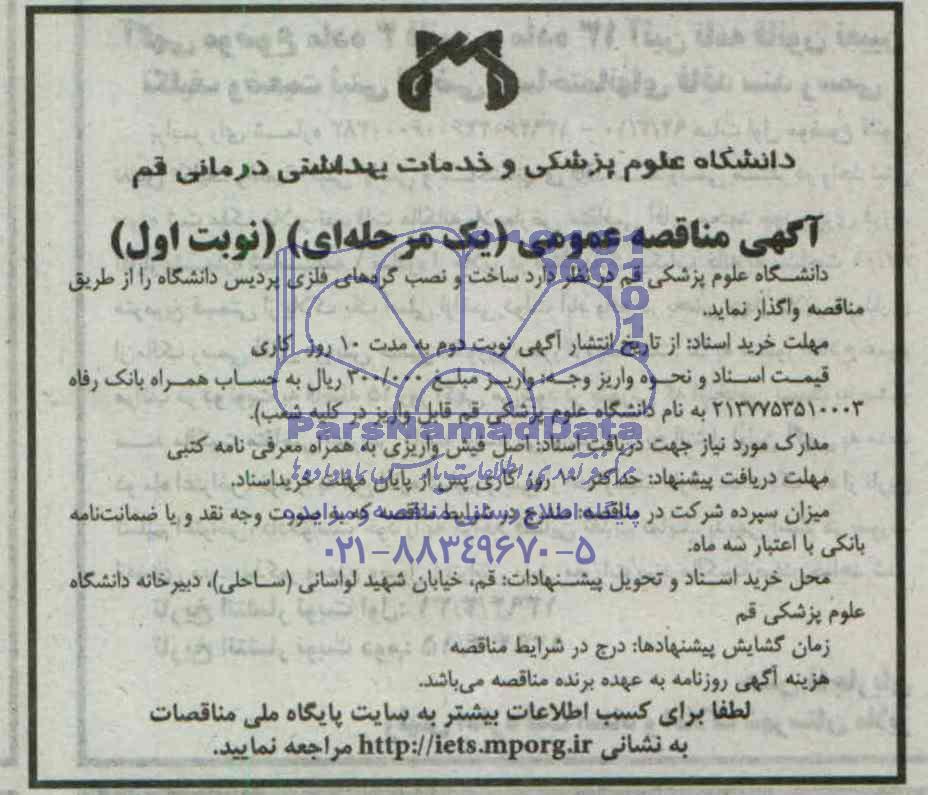 دانشگاه علوم پزشکی و خدمات بهداشتی درمانی قم
آگهی مناقصه عمومی (یک مرحله‌ای) (نوبت اول)
دانشگاه علوم پزشکی قم در نظر دارد ساخت و نصب گردهای فلزی پردیس دانشگاه را از طریق
مناقصه واگذار نماید.
مهلت خرید اسناد: از تاریخ انتشار آگهی نوبت دوم به مدت ۱۰ روز کاری
قیمت اسناد و نحوه واریز وجه: واریز مبلغ ۳۰۰/۰۰۰ ریال به حساب همراه بانک رفاه
۲۱۳۷۷۵۳۵۱۰۰۰۳ به نام دانشگاه علوم پزشکی قم قابل واریز در کلیه شعب).
ParsNamadData
مدارک مورد نیاز جهت دریافت اسناد: اصل فیش واریزی به همراه معرفی نامه کتبی
مهلت دریافت پیشنهاد: حداکثر ۱۰ روز کاری پس از پایان مهلت خرید اسناد.
میزان سپرده شرکت در مناقصه: مندرج در شرایط مناقصه که به صورت وجه نقد و یا ضمانت‌نامه
پایگاه اطلاع رسانی مناقصه و مزایده
بانکی با اعتبار سه ماه.
۰۲۱-۸۸۳۴۹۶۷۰-۵
محل خرید اسناد و تحویل پیشنهادات: قم، خیابان شهید لواسانی (ساحلی)، دبیرخانه دانشگاه
علوم پزشکی قم
زمان گشایش پیشنهادها: درج در شرایط مناقصه
هزینه آگهی روزنامه به عهده برنده مناقصه می‌باشد.
لطفا برای کسب اطلاعات بیشتر به سایت پایگاه ملی مناقصات
به نشانی http://iets.mporg.ir مراجعه نمایید.